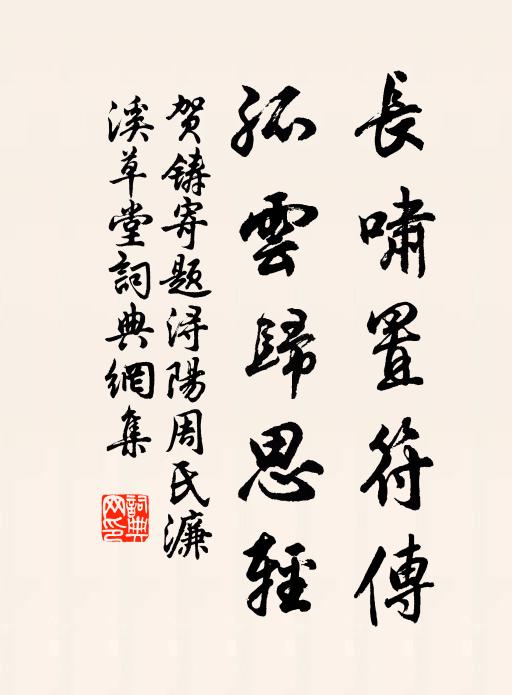 長嘯置符傳
孤雲歸思輕
贺鑄寄题浔陽周氏濂
溪草堂詞典網集
詞典
网印